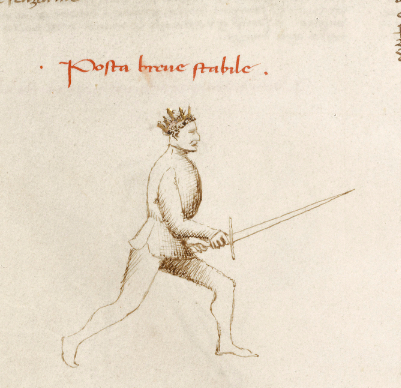 · Posta breue stabile ·